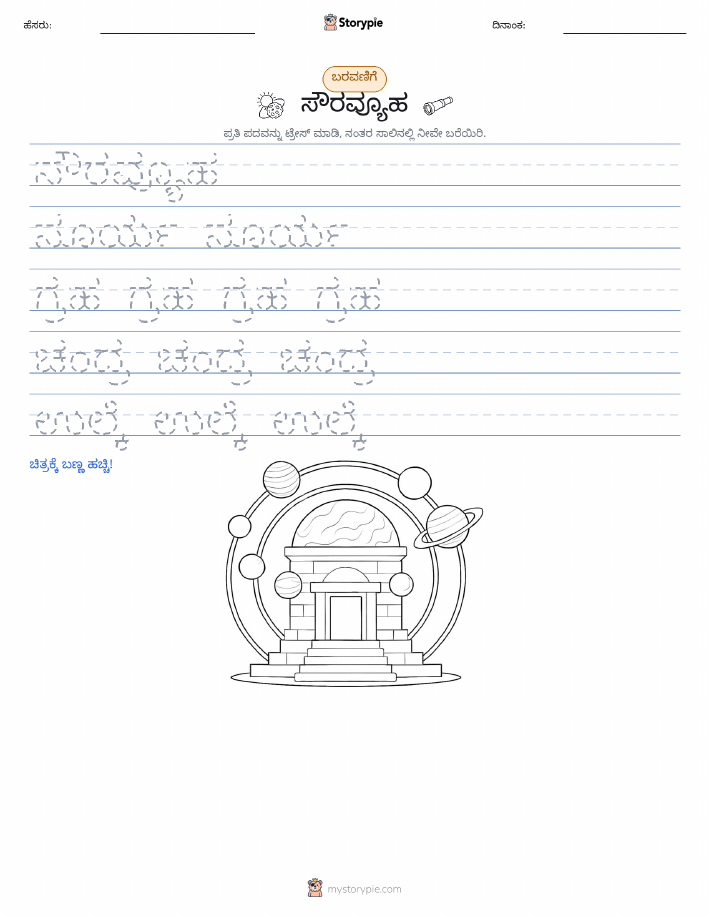 ಹೆಸರು:
Storypie
ದಿನಾಂಕ:
ಬರವಣಿಗೆ
ಸೌರವ್ಯೂಹ
ಪ್ರತಿ ಪದವನ್ನು ಟ್ರೇಸ್ ಮಾಡಿ, ನಂತರ ಸಾಲಿನಲ್ಲಿ ನೀವೇ ಬರೆಯಿರಿ.
ಸೌರವ್ಯೂಹ
ಸೂರ್ಯ ಸೂರ್ಯ
ಗ್ರಹ ಗ್ರಹ ಗ್ರಹ ಗ್ರಹ
ಚಂದ್ರ ಚಂದ್ರ ಚಂದ್ರ
ಉಲ್ಕೆ ಉಲ್ಕೆ ಉಲ್ಕೆ
ಚಿತ್ರಕ್ಕೆ ಬಣ್ಣ ಹಚ್ಚಿ!
mystorypie.com